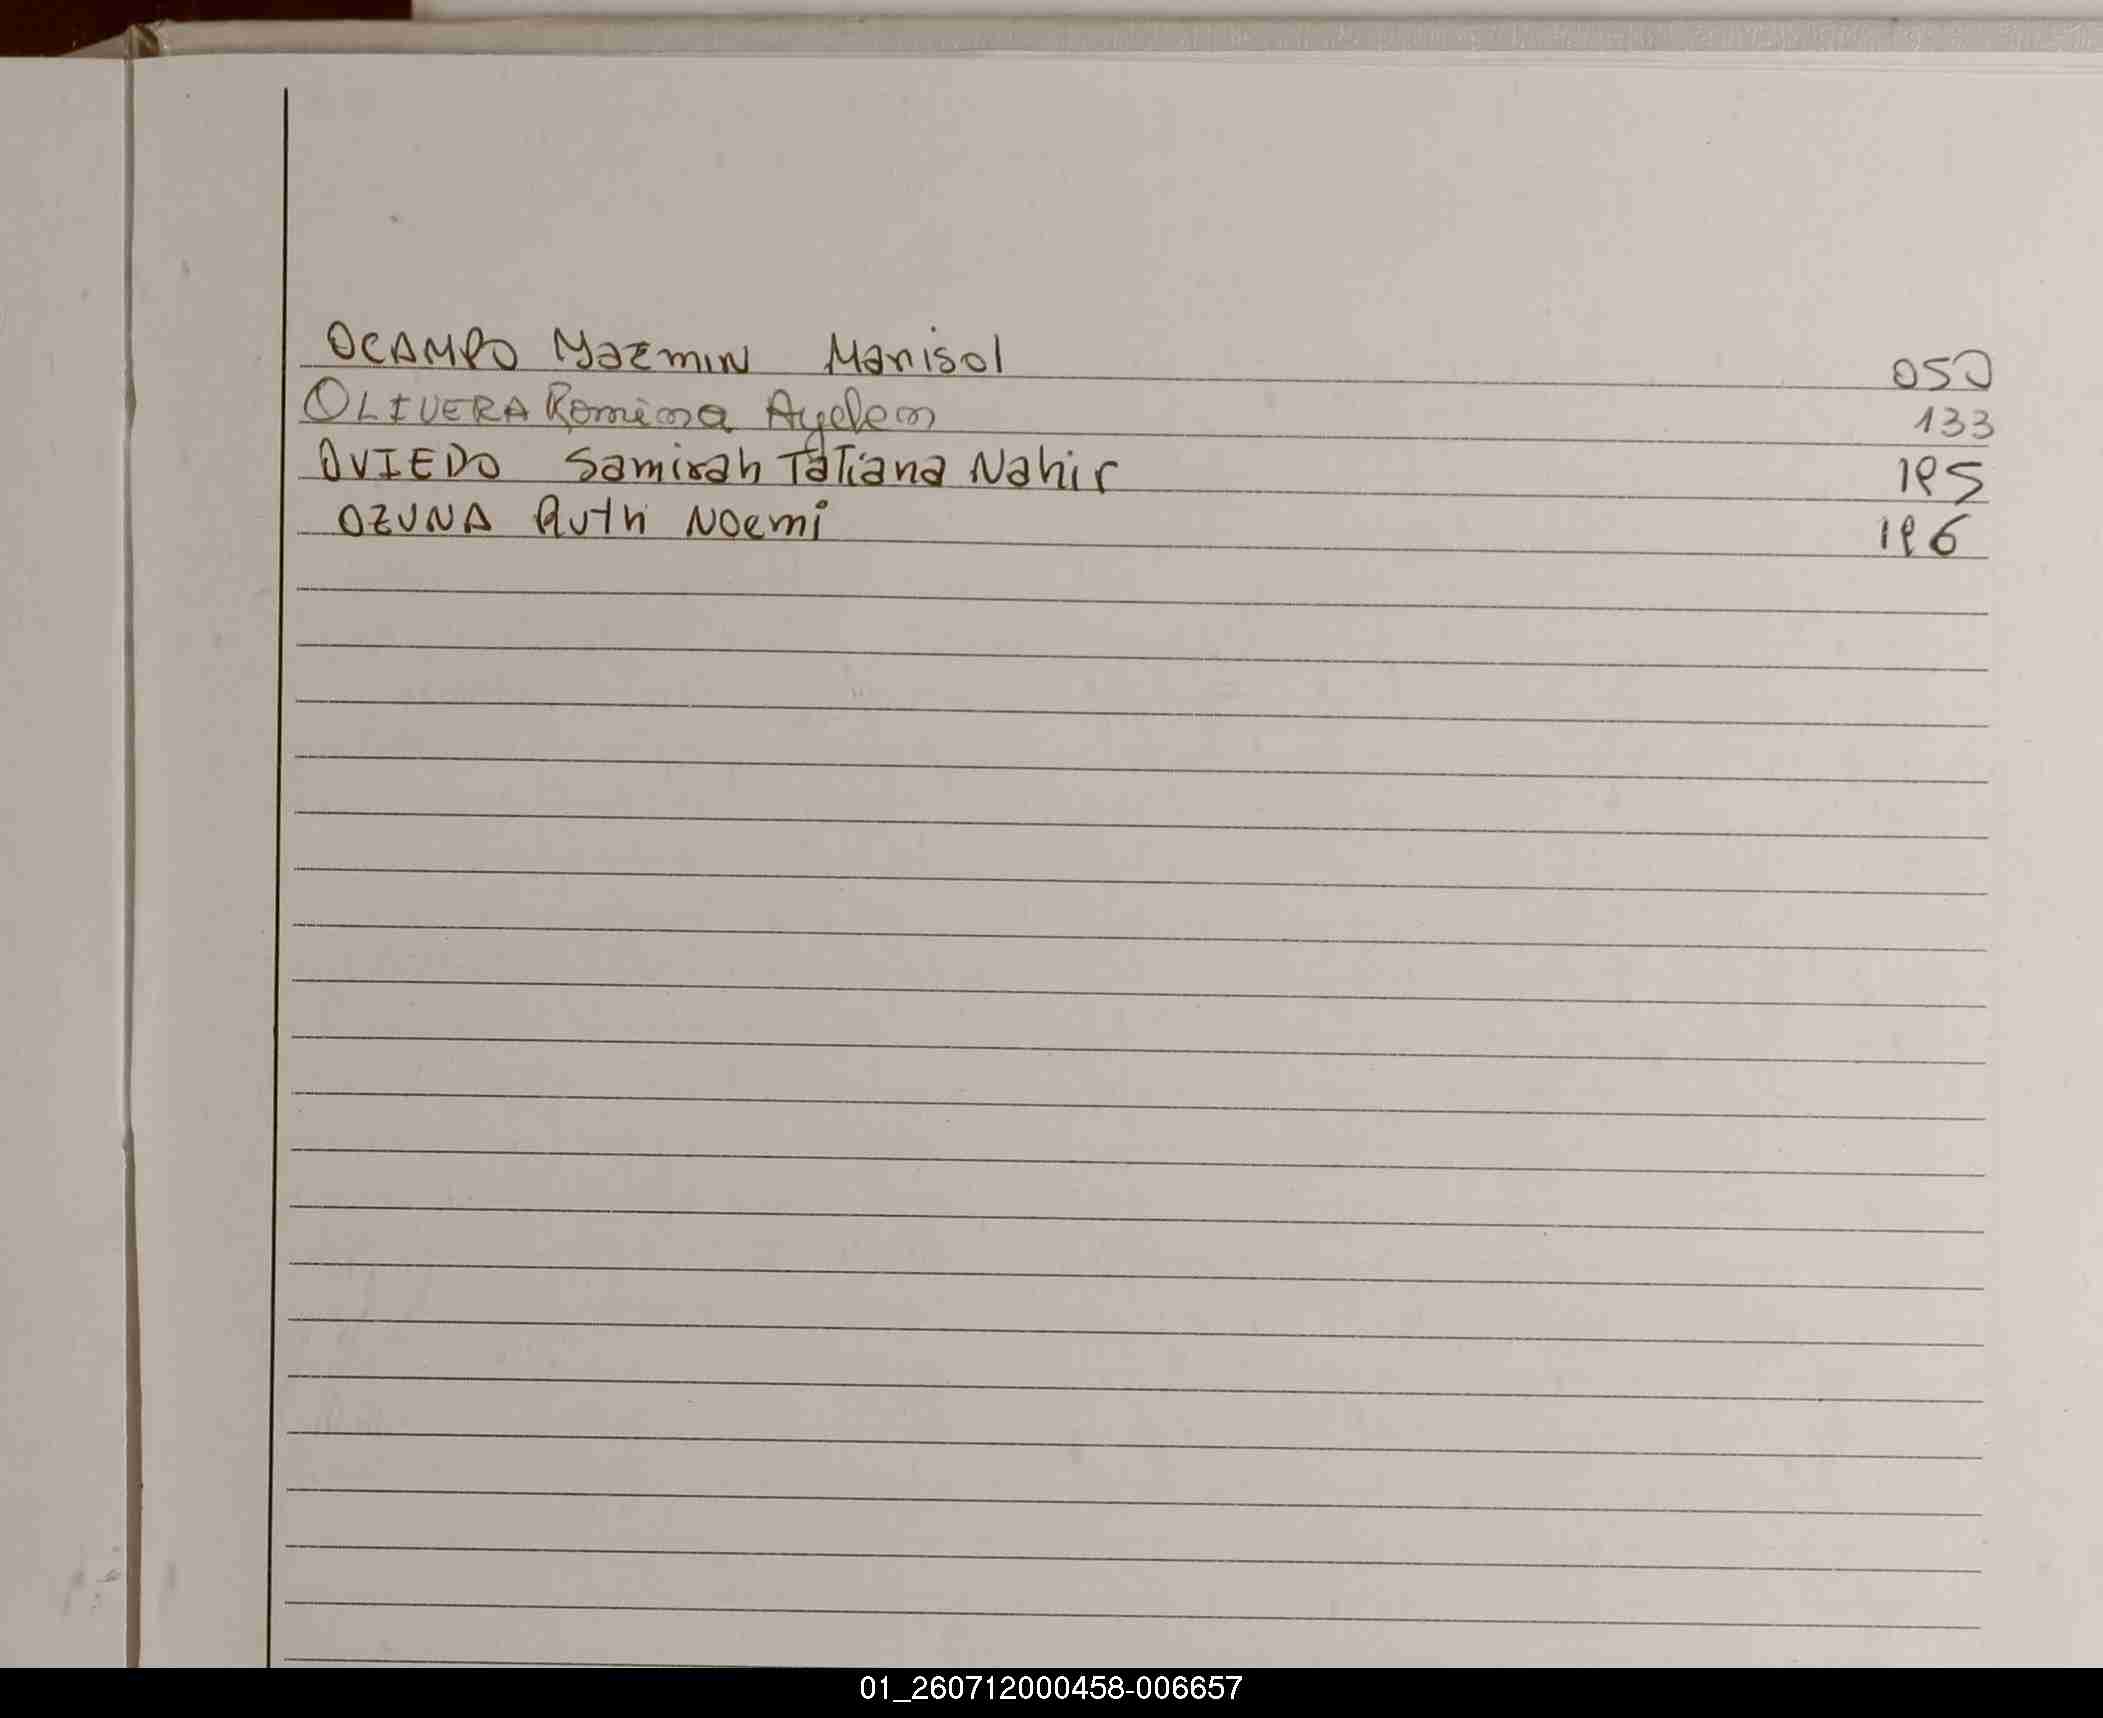 OCAMPO Yazmin Marisol 050
OLIVERA Romina Ayelen 133
OVIEDO Samirah Tatiana Nahir 195
OZUNA Ruth Noemi 196
01_260712000458-006657